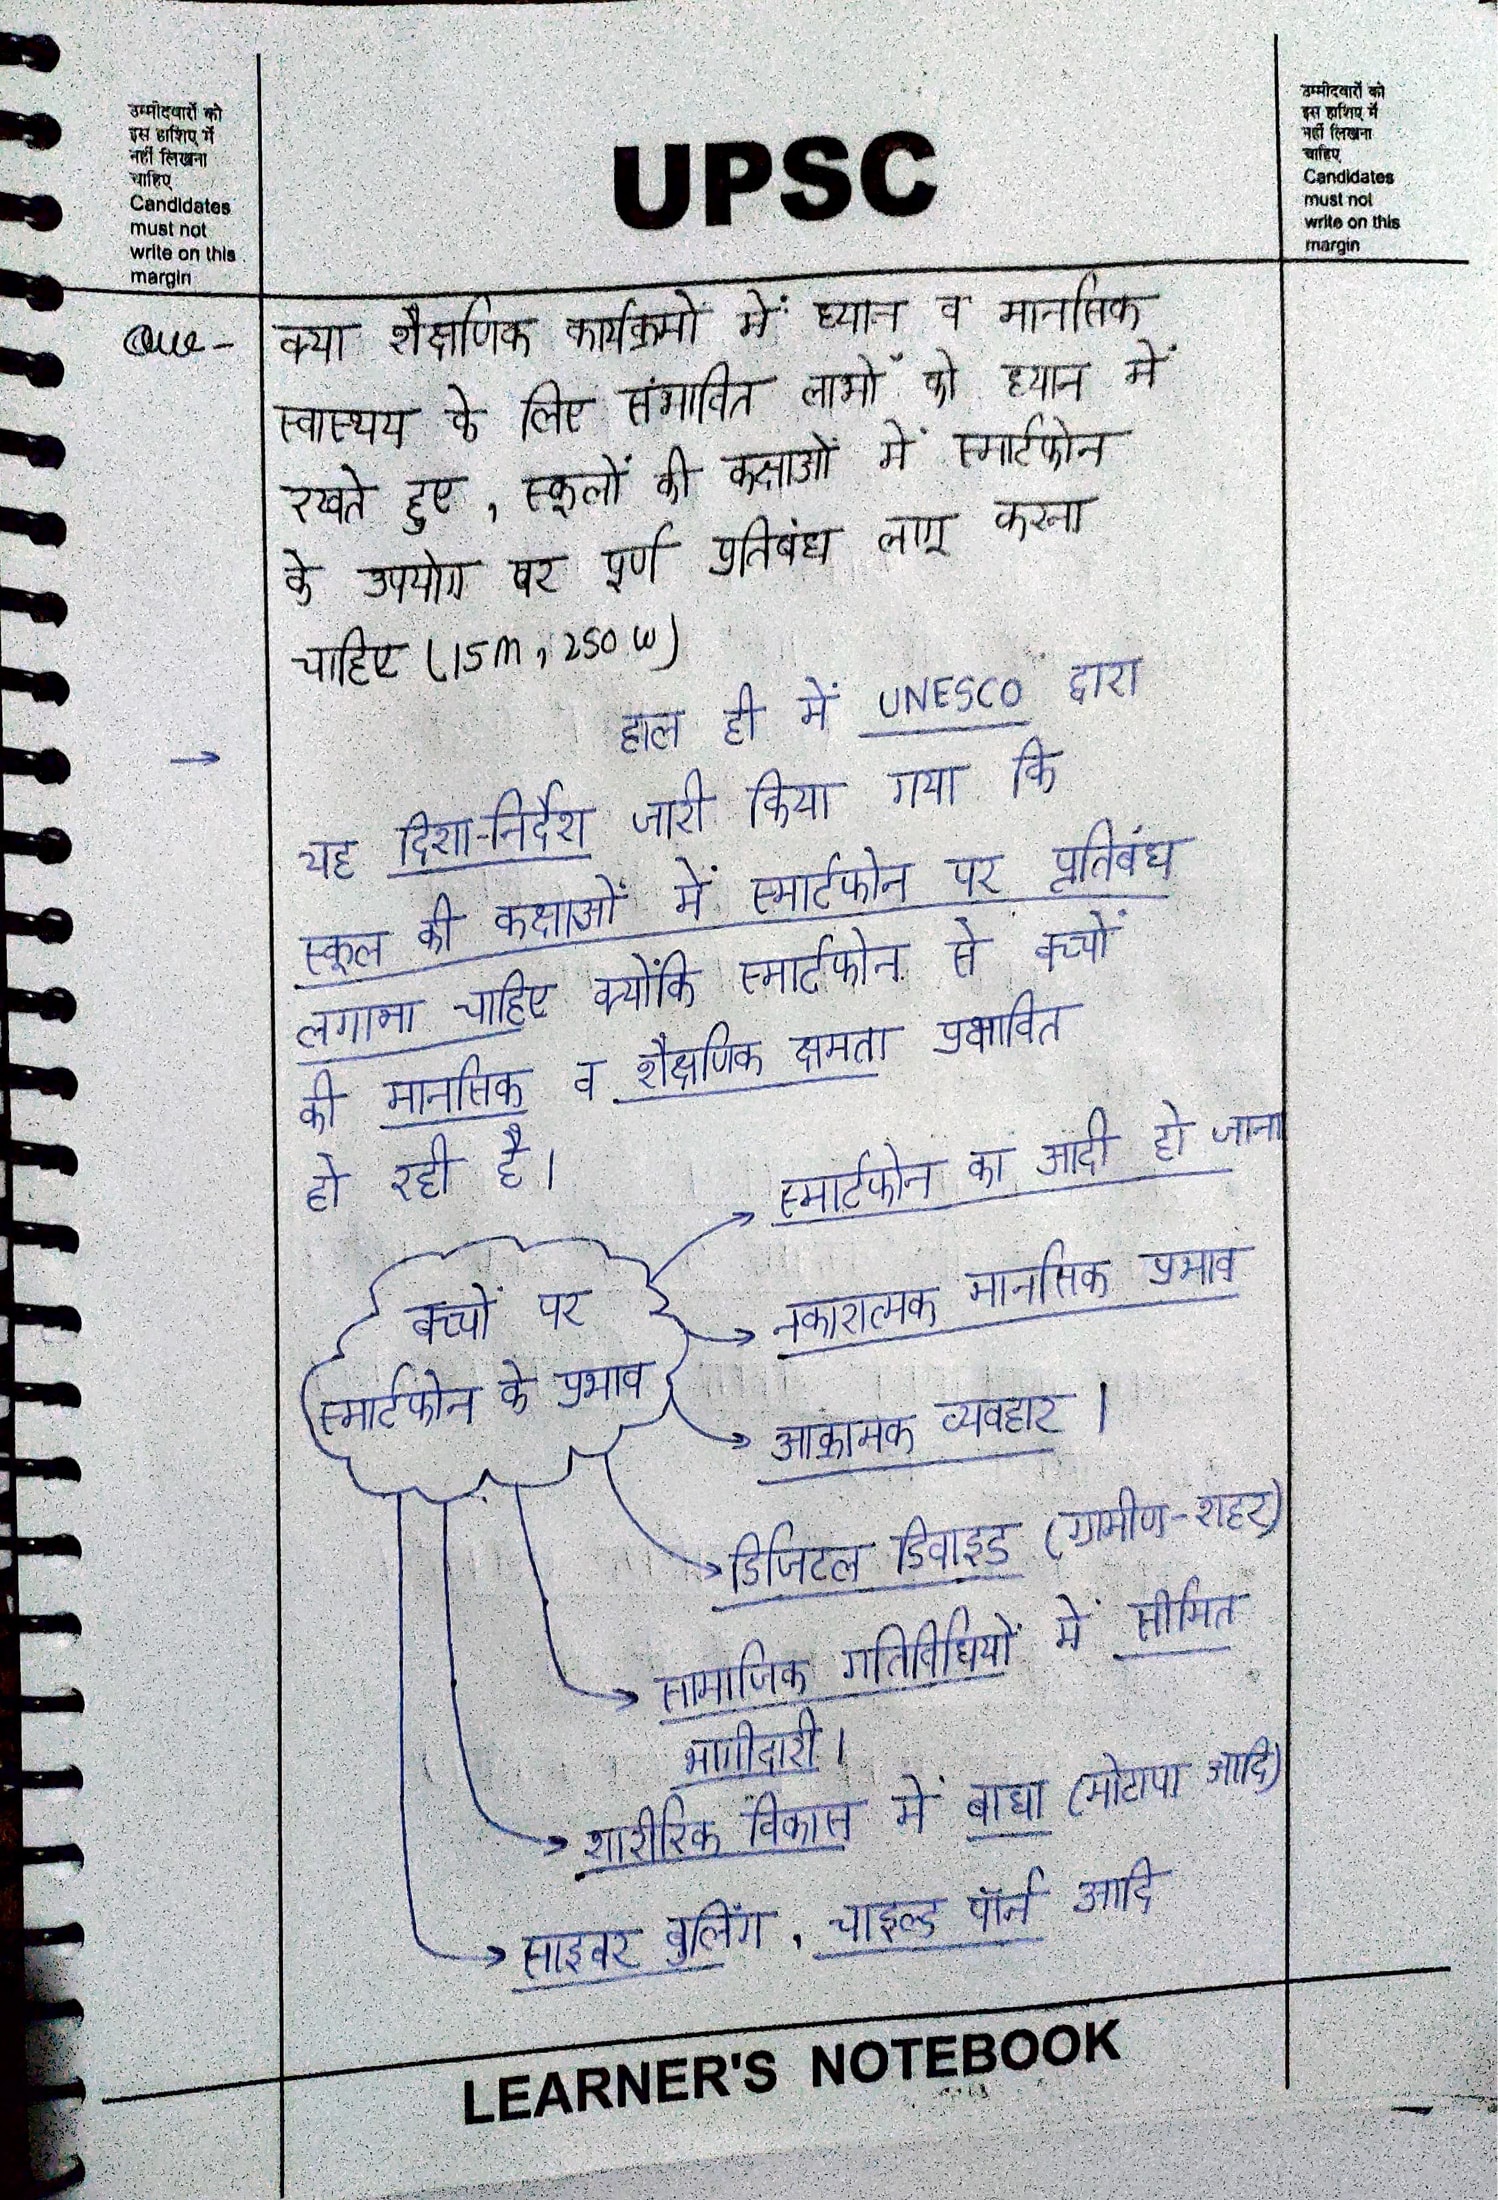 उम्मीदवारों को
इस हाशिए में
नहीं लिखना
चाहिए
Candidates
must not
write on this
margin
UPSC
उम्मीदवारों को
इस हाशिए में
नहीं लिखना
चाहिए
Candidates
must not
write on this
margin
Que - क्या शैक्षणिक कार्यक्रमों में ध्यान व मानसिक
स्वास्थय के लिए संभावित लाभों को ध्यान में
रखते हुए, स्कूलों की कक्षाओं में स्मार्टफोन
के उपयोग पर पूर्ण प्रतिबंध लागू करना
चाहिए (15m, 250 W)
→ हाल ही में UNESCO द्वारा
यह दिशा-निर्देश जारी किया गया कि
स्कूल की कक्षाओं में स्मार्टफोन पर प्रतिबंध
लगाना चाहिए क्योंकि स्मार्टफोन से बच्चों
की मानसिक व शैक्षणिक क्षमता प्रभावित
हो रही है।
बच्चों पर
स्मार्टफोन के प्रभाव
→ स्मार्टफोन का आदी हो जाना
→ नकारात्मक मानसिक प्रभाव
→ आक्रामक व्यवहार।
→ डिजिटल डिवाइड (ग्रामीण-शहर)
→ सामाजिक गतिविधियों में सीमित
भागीदारी।
→ शारीरिक विकास में बाधा (मोटापा आदि)
→ साइबर बुलिंग, चाइल्ड पॉर्न आदि
LEARNER'S NOTEBOOK